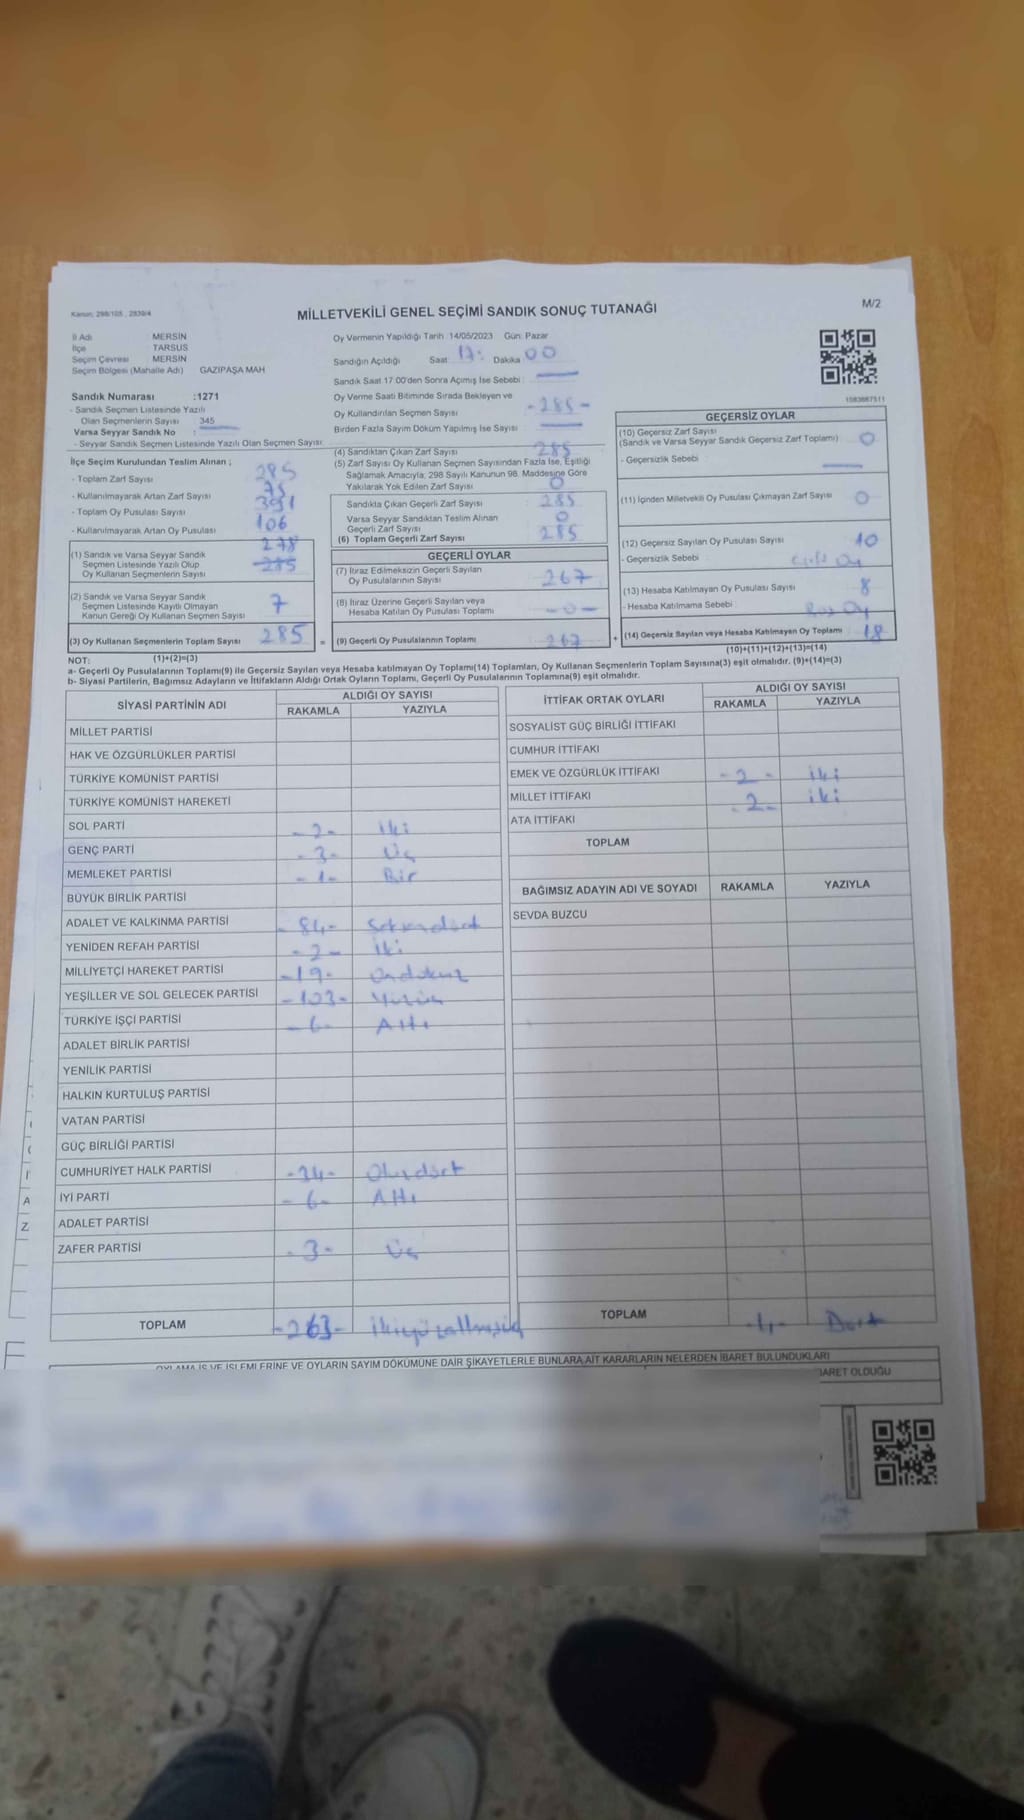 Kanun: 298/105 , 2839/4
MİLLETVEKİLİ GENEL SEÇİMİ SANDIK SONUÇ TUTANAĞI
M/2
İl Adı MERSİN
İlçe TARSUS
Seçim Çevresi MERSİN
Seçim Bölgesi (Mahalle Adı) GAZİPAŞA MAH
Sandık Numarası :1271
- Sandık Seçmen Listesinde Yazılı
Olan Seçmenlerin Sayısı 345
Varsa Seyyar Sandık No :
- Seyyar Sandık Seçmen Listesinde Yazılı Olan Seçmen Sayısı:
İlçe Seçim Kurulundan Teslim Alınan ;
- Toplam Zarf Sayısı 285
- Kullanılmayarak Artan Zarf Sayısı 75
- Toplam Oy Pusulası Sayısı 391
- Kullanılmayarak Artan Oy Pusulası 106
278
(1) Sandık ve Varsa Seyyar Sandık
Seçmen Listesinde Yazılı Olup
Oy Kullanan Seçmenlerin Sayısı 285
(2) Sandık ve Varsa Seyyar Sandık
Seçmen Listesinde Kayıtlı Olmayan
Kanun Gereği Oy Kullanan Seçmen Sayısı 7
(3) Oy Kullanan Seçmenlerin Toplam Sayısı 285 =
(1)+(2)=(3)
Oy Vermenin Yapıldığı Tarih :14/05/2023 Gün: Pazar
Sandığın Açıldığı Saat 17: Dakika 00
Sandık Saat 17 00'den Sonra Açımış İse Sebebi :
Oy Verme Saati Bitiminde Sırada Bekleyen ve
Oy Kullandırılan Seçmen Sayısı -285-
Birden Fazla Sayım Döküm Yapılmış İse Sayısı
(4) Sandıktan Çıkan Zarf Sayısı 285
(5) Zarf Sayısı Oy Kullanan Seçmen Sayısından Fazla İse, Eşitliği
Sağlamak Amacıyla, 298 Sayılı Kanunun 98. Maddesine Göre
Yakılarak Yok Edilen Zarf Sayısı 0
Sandıkta Çıkan Geçerli Zarf Sayısı 285
Varsa Seyyar Sandıktan Teslim Alınan
Geçerli Zarf Sayısı 0
(6) Toplam Geçerli Zarf Sayısı 285
GEÇERLİ OYLAR
(7) İtiraz Edilmeksizin Geçerli Sayılan
Oy Pusulalarının Sayısı 267
(8) İtiraz Üzerine Geçerli Sayılan veya
Hesaba Katılan Oy Pusulası Toplamı -0-
(9) Geçerli Oy Pusulalarının Toplamı 267 +
1083887511
GEÇERSİZ OYLAR
(10) Geçersiz Zarf Sayısı
(Sandık ve Varsa Seyyar Sandık Geçersiz Zarf Toplamı) 0
- Geçersizlik Sebebi
(11) İçinden Milletvekili Oy Pusulası Çıkmayan Zarf Sayısı 0
(12) Geçersiz Sayılan Oy Pusulası Sayısı 10
- Geçersizlik Sebebi Oy
(13) Hesaba Katılmayan Oy Pusulası Sayısı 8
- Hesaba Katılmama Sebebi Boş Oy
(14) Geçersiz Sayılan veya Hesaba Katılmayan Oy Toplamı 18
(10)+(11)+(12)+(13)=(14)
NOT:
a- Geçerli Oy Pusulalarının Toplamı(9) ile Geçersiz Sayılan veya Hesaba katılmayan Oy Toplamı(14) Toplamları, Oy Kullanan Seçmenlerin Toplam Sayısına(3) eşit olmalıdır. (9)+(14)=(3)
b- Siyasi Partilerin, Bağımsız Adayların ve İttifakların Aldığı Ortak Oyların Toplamı, Geçerli Oy Pusulalarının Toplamına(9) eşit olmalıdır.
SİYASİ PARTİNİN ADI
ALDIĞI OY SAYISI
RAKAMLA YAZIYLA
MİLLET PARTİSİ
HAK VE ÖZGÜRLÜKLER PARTİSİ
TÜRKİYE KOMÜNİST PARTİSİ
TÜRKİYE KOMÜNİST HAREKETİ
SOL PARTİ -2- İki
GENÇ PARTİ -3- Üç
MEMLEKET PARTİSİ -1- Bir
BÜYÜK BİRLİK PARTİSİ
ADALET VE KALKINMA PARTİSİ -84- Seksendört
YENİDEN REFAH PARTİSİ -2- İki
MİLLİYETÇİ HAREKET PARTİSİ -19- Ondokuz
YEŞİLLER VE SOL GELECEK PARTİSİ -103- Yüzüç
TÜRKİYE İŞÇİ PARTİSİ -6- Altı
ADALET BİRLİK PARTİSİ
YENİLİK PARTİSİ
HALKIN KURTULUŞ PARTİSİ
VATAN PARTİSİ
GÜÇ BİRLİĞİ PARTİSİ
CUMHURİYET HALK PARTİSİ -34- Otuzdört
İYİ PARTİ -6- Altı
ADALET PARTİSİ
ZAFER PARTİSİ -3- Üç
TOPLAM -263- İkiyüzaltmışüç
İTTİFAK ORTAK OYLARI
ALDIĞI OY SAYISI
RAKAMLA YAZIYLA
SOSYALİST GÜÇ BİRLİĞİ İTTİFAKI
CUMHUR İTTİFAKI
EMEK VE ÖZGÜRLÜK İTTİFAKI -2- iki
MİLLET İTTİFAKI -2- iki
ATA İTTİFAKI
TOPLAM
BAĞIMSIZ ADAYIN ADI VE SOYADI RAKAMLA YAZIYLA
SEVDA BUZCU
TOPLAM -4- Dört
OYLAMA İŞ VE İŞLEMLERİNE VE OYLARIN SAYIM DÖKÜMÜNE DAİR ŞİKAYETLERLE BUNLARA AİT KARARLARIN NELERDEN İBARET BULUNDUKLARI
BARET OLDUĞU